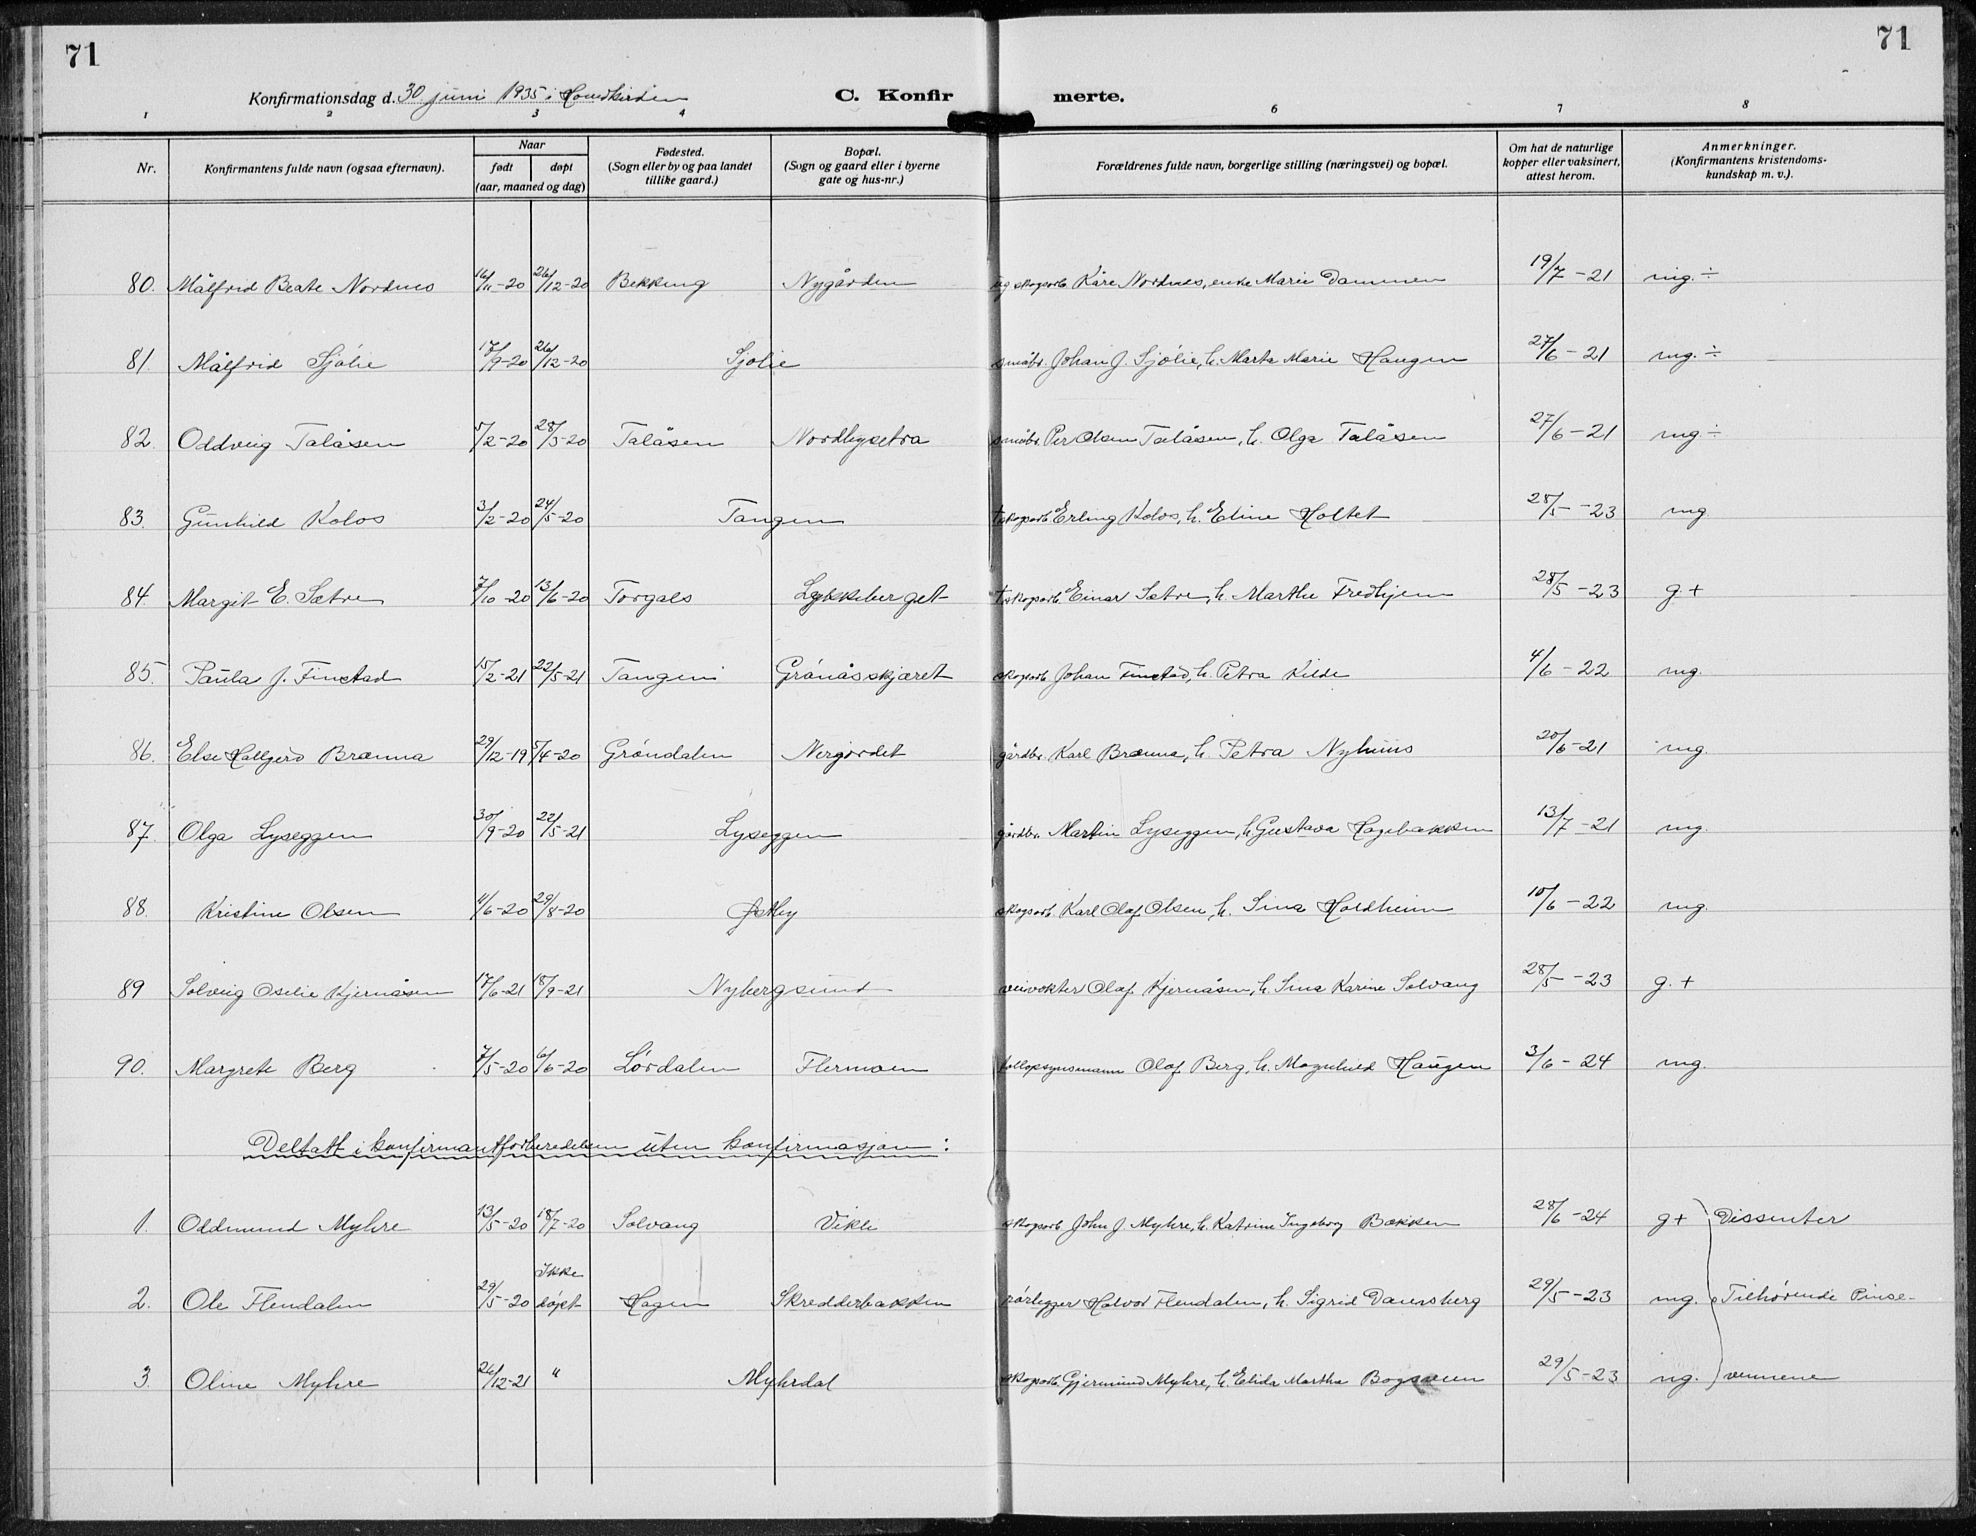 71
71
Konfirmationsdag d. 30 juni 1935 i Hovedkirken
C. Konfirmerte.
1 2 3 4 6 7 8
Nr.
Konfirmantens fulde navn (ogsaa efternavn).
Naar
født
døpt
(aar, maaned og dag)
Fødested.
(Sogn eller by og paa landet
tillike gaard.)
Bopæl.
(Sogn og gaard eller i byerne
gate og hus-nr.)
Forældrenes fulde navn, borgerlige stilling (næringsvei) og bopæl.
Om hat de naturlige
kopper eller vaksinert,
attest herom.
Anmerkninger.
(Konfirmantens kristendoms-
kundskap m. v.).
80. Målfrid Beate Nordnes 16/11-20 26/12-20 Bekkeng Nygården ug skogsarb. Kåre Nordnes, enke Marie Dammen 19/7-21 mg. ÷
81. Målfrid Sjølie 17/9-20 26/12-20 Sjølie småbr. Johan J. Sjølie, h. Marta Marie Haugen 27/6-21 mg. ÷
82. Oddveig Talåsen 5/2-20 28/3-20 Talåsen Nordbysetra småbr. Per Olsen Talåsen, h. Olga Talåsen 27/6-21 mg ÷
83. Gunhild Kolos 3/2-20 24/5-20 Tangen skogsarb. Erling Kolos, h. Eline Holtet 28/5-23 mg.
84. Margit E. Sætre 7/10-20 13/6-20 Torgals Lykkeberget skogsarb. Einar Sætre, h. Marthe Fredhjem 28/5-23 g. +
85. Paula J. Finstad 15/2-21 22/5-21 Tangen Grånåsskjæret skogsarb. Johan Finstad, h. Petra Kilde 4/6-22 mg.
86. Else Hallgerd Brænna 29/12-19 5/4-20 Grøndalen Nergordet gårdbr. Karl Brænna, h. Petra Nyhuus 20/6-21 mg.
87. Olga Lyseggen 30/9-20 22/5-21 Lyseggen gårdbr. Martin Lyseggen, h. Gustava Hagebakken 13/7-21 mg.
88. Kristine Olsen 11/6-20 29/8-20 Østby skogsarb. Karl Olaf Olsen, h. Sina Hordheim 10/6-22 mg.
89 Solveig Oselie Kjernåsen 17/6-21 18/9-21 Nybergsund veivokter Olaf Kjernåsen, h. Sina Karine Solvang 28/5-23 g. +
90. Margrete Berg 7/5-20 6/6-20 Lørdalen Flermoen tollopsynsmann Olaf Berg, h. Magnhild Haugen 3/6-24 mg.
Deltatt i konfirmantforberedelsen uten konfirmasjon:
1. Oddmund Myhre 13/5-20 18/7-20 Solvang Vikle skogsarb. John J. Myhre, h. Katrine Ingeborg Bakken 28/6-24 g + Dissenter
2. Ole Flendalen 29/5-20 Ikke døpt Hagen Skredderbakken rørlegger Halvor Flendalen, h. Sigrid Daensberg 29/5-23 mg. Tilhørende Pinse-
3. Oline Myhre 26/12-21 " Myhrdal skogsarb. Gjermund Myhre, h. Elida Martha 29/5-23 ng. vennene